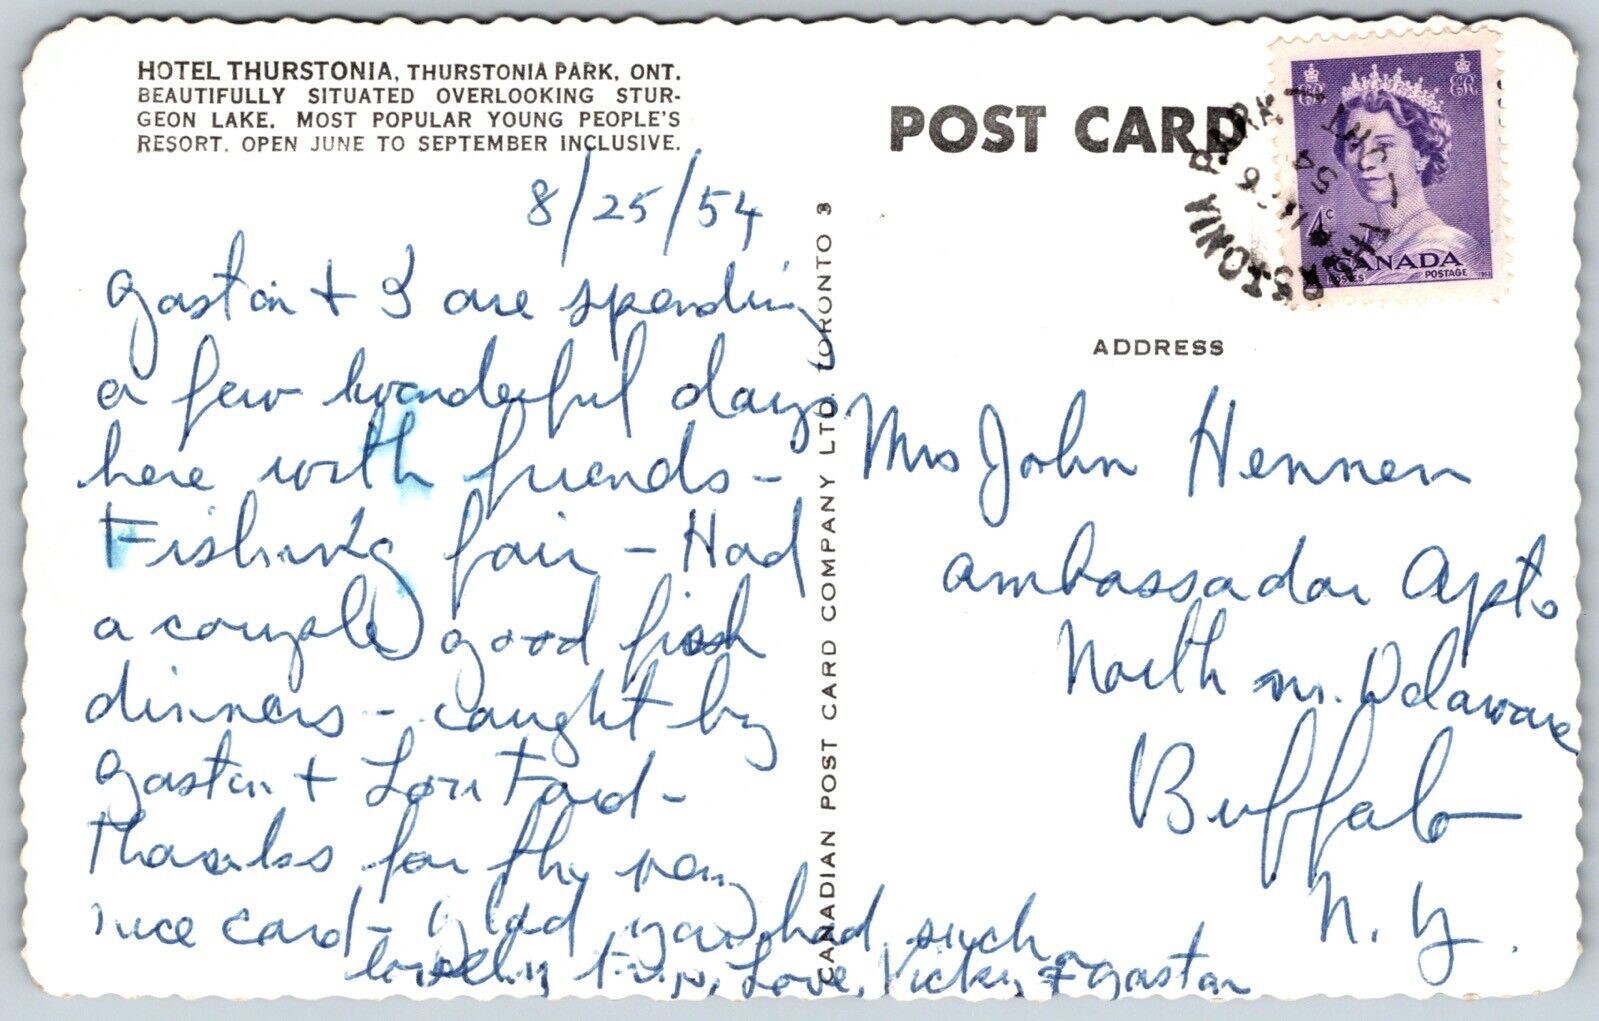 HOTEL THURSTONIA, THURSTONIA PARK, ONT.
BEAUTIFULLY SITUATED OVERLOOKING STUR-
GEON LAKE. MOST POPULAR YOUNG PEOPLE'S
RESORT. OPEN JUNE TO SEPTEMBER INCLUSIVE.
8/25/54
Gaston + I are spending
a few wonderful days
here with friends -
Fishing fair - Had
a couple good fish
dinners - caught by
Gaston + Lou Ford -
Thanks for the very
nice card - glad you had such a
lovely trip, Love, Vicki, & Gaston
CANADIAN POST CARD COMPANY LTD. TORONTO 3
POST CARD
THURSTONIA PARK
ONT
54
4¢
CANADA
POSTAGE
ADDRESS
Mrs John Hennen
Ambassador Apts
North nr. Delaware
Buffalo
N.Y.